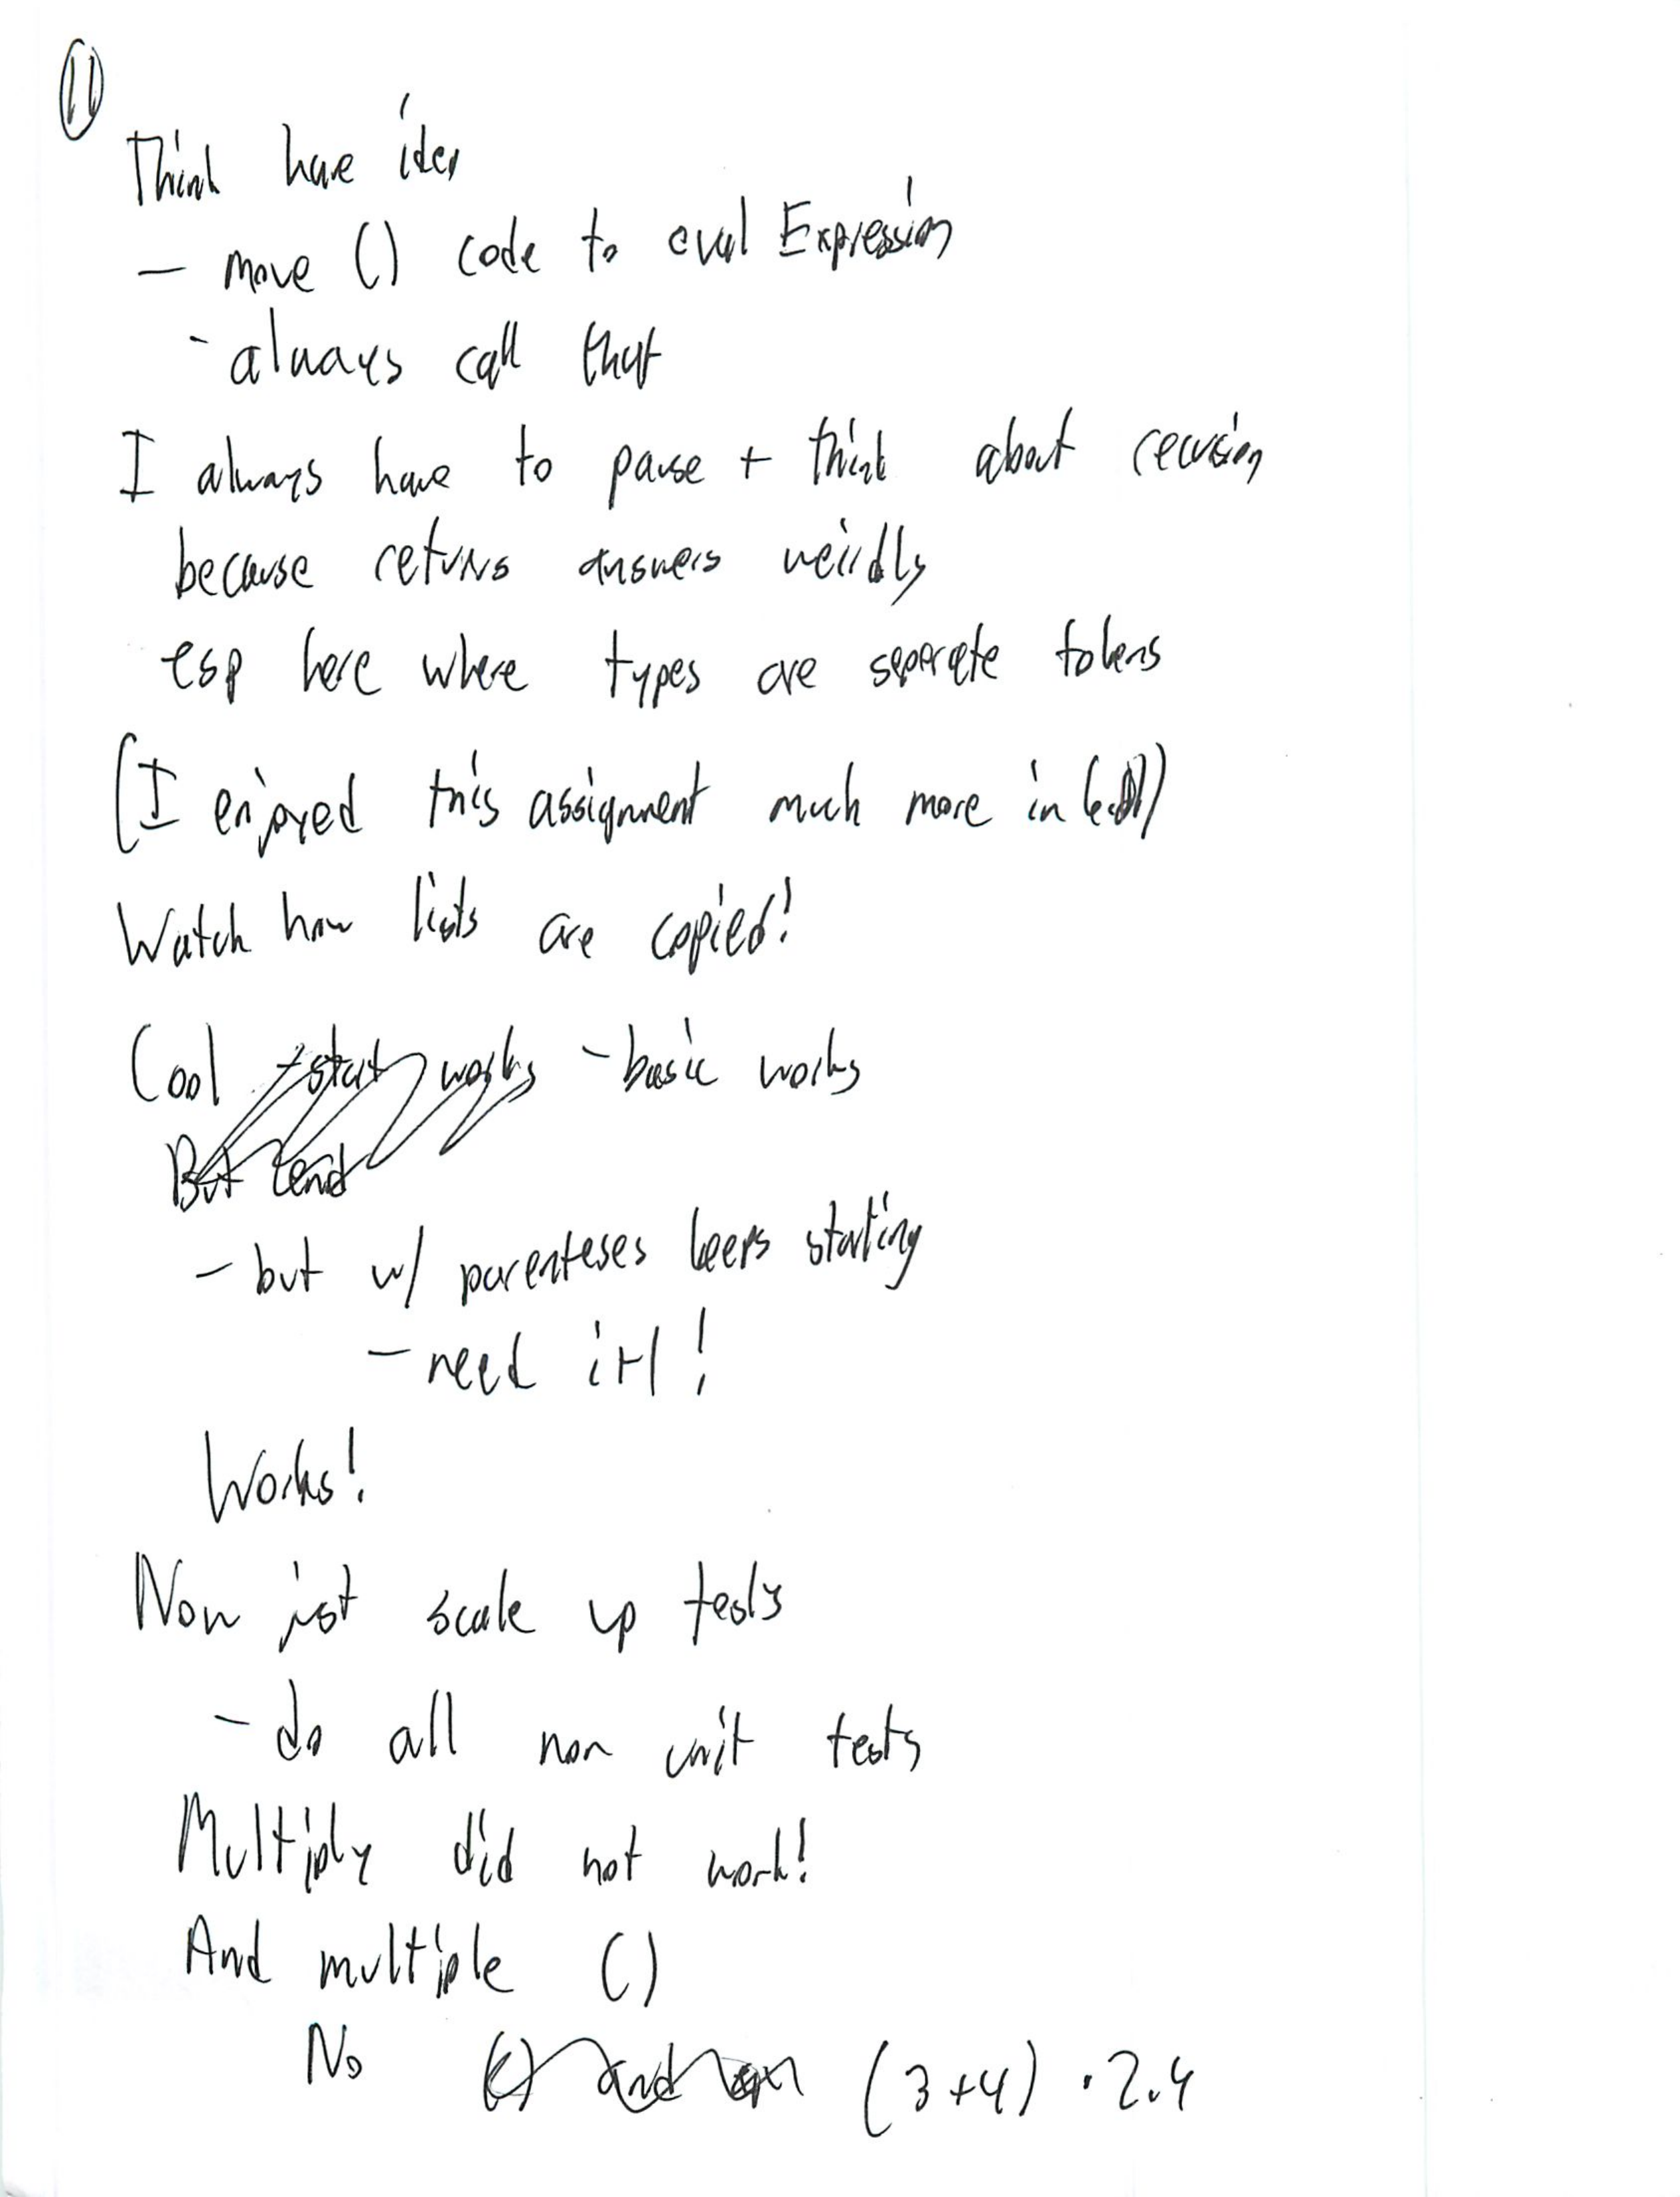 11
Think have idea
- move () code to eval Expression
- always call that
I always have to pause + think about recursion
because returns answers weirdly
esp here where types are seperate tokens
(I enjoyed this assignment much more in 6.01)
Watch how lists are copied!
Cool - start works - basic works
But
- but w/ parenteses keeps starting
- need i+1!
Works!
Now just scale up tests
- do all non unit tests
Multiply did not work!
And multiple ()
No () and (3+4) · 2.4